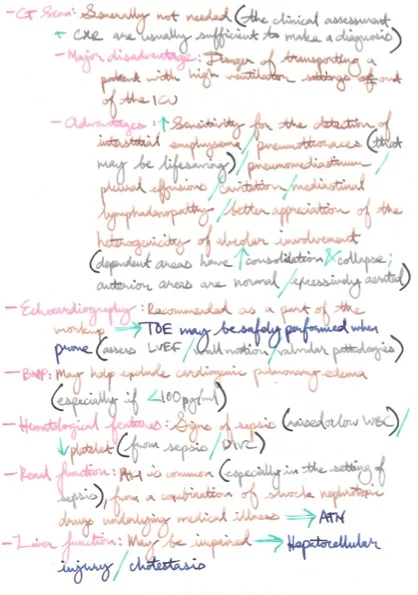 - CT Scan: Generally not needed (the clinical assessment
+ CXR are usually sufficient to make a diagnosis)
- Major disadvantage: Danger of transporting a
patient with high ventilator settings out
of the ICU
- Advantages: ↑ Sensitivity for the detection of
interstitial emphysema / pneumothoraces (that
may be lifesaving) / pneumomediastinum /
pleural effusions / cavitation / mediastinal
lymphadenopathy / better appreciation of the
heterogenicity of alveolar involvement
(dependent areas have ↑ consolidation & collapse;
anterior areas are normal / excessively aerated)
- Echocardiography: Recommended as a part of the
workup ⟹ TOE may be safely performed when
prone (assess LVEF / wall motion / valvular pathologies)
- BNP: May help exclude cardiogenic pulmonary edema
(especially if <100pg/ml)
- Hematological features: Signs of sepsis (raised or low WBC) /
↓ platelet (from sepsis / DIVC)
- Renal function: AKI is common (especially in the setting of
sepsis), from a combination of shock nephrotoxic
drugs underlying medical illness ⟹ ATN
- Liver function: May be impaired → Hepatocellular
injury / cholestasis